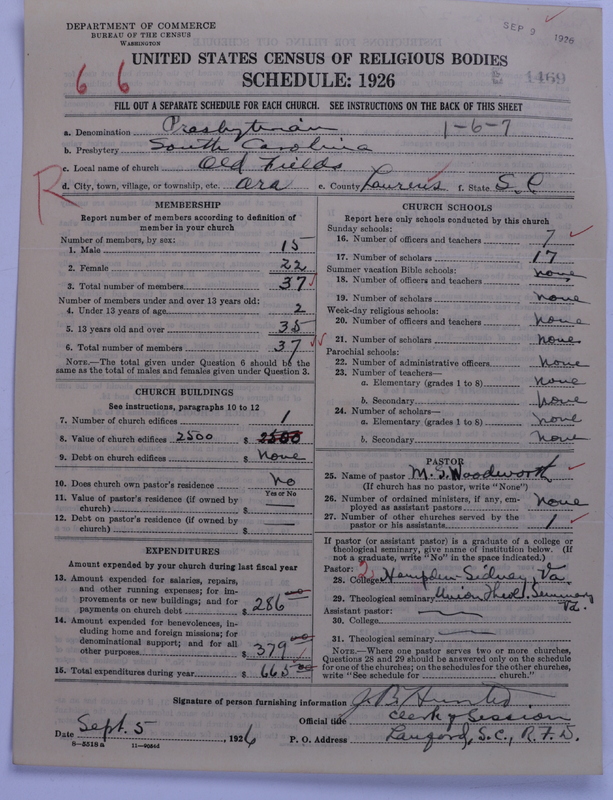 DEPARTMENT OF COMMERCE
BUREAU OF THE CENSUS
WASHINGTON
SEP 9 1926
UNITED STATES CENSUS OF RELIGIOUS BODIES
SCHEDULE: 1926
6 6
1469
FILL OUT A SEPARATE SCHEDULE FOR EACH CHURCH. SEE INSTRUCTIONS ON THE BACK OF THIS SHEET
a. Denomination Presbyterian 1-6-7
b. Presbytery South Carolina
c. Local name of church Old Fields
R
d. City, town, village, or township, etc. Ora e. County Laurens f. State S. C
MEMBERSHIP
Report number of members according to definition of member in your church
Number of members, by sex:
1. Male 15
2. Female 22
3. Total number of members 37
Number of members under and over 13 years old:
4. Under 13 years of age 2
5. 13 years old and over 35
6. Total number of members 37
NOTE.—The total given under Question 6 should be the
same as the total of males and females given under Question 3.
CHURCH BUILDINGS
See instructions, paragraphs 10 to 12
7. Number of church edifices 1
8. Value of church edifices 2500 $ 2500
9. Debt on church edifices $ None
10. Does church own pastor's residence? No
Yes or No
11. Value of pastor's residence (if owned by
church) $
12. Debt on pastor's residence (if owned by
church) $
EXPENDITURES
Amount expended by your church during last fiscal year
13. Amount expended for salaries, repairs,
and other running expenses; for im-
provements or new buildings; and for
payments on church debt $ 286 00
14. Amount expended for benevolences, in-
cluding home and foreign missions; for
denominational support; and for all
other purposes $ 379 00
15. Total expenditures during year $ 665 00
CHURCH SCHOOLS
Report here only schools conducted by this church
Sunday schools:
16. Number of officers and teachers 7
17. Number of scholars 17
Summer vacation Bible schools:
18. Number of officers and teachers none
19. Number of scholars none
Week-day religious schools:
20. Number of officers and teachers none
21. Number of scholars none
Parochial schools:
22. Number of administrative officers none
23. Number of teachers—
a. Elementary (grades 1 to 8) none
b. Secondary none
24. Number of scholars—
a. Elementary (grades 1 to 8) none
b. Secondary none
PASTOR
25. Name of pastor M. S. Woodworth
(If church has no pastor, write "None")
26. Number of ordained ministers, if any, em-
ployed as assistant pastors none
27. Number of other churches served by the
pastor or his assistants 1
If pastor (or assistant pastor) is a graduate of a college or
theological seminary, give name of institution below. (If
not a graduate, write "No" in the space indicated.)
Pastor:
28. College Hampden-Sidney, Va
29. Theological seminary Union Theol. Seminary Va.
Assistant pastor:
30. College
31. Theological seminary
NOTE.—Where one pastor serves two or more churches,
Questions 28 and 29 should be answered only on the schedule
for one of the churches; on the schedules for the other churches,
write "See schedule for church."
Signature of person furnishing information J. B. Hunter
Official title Clerk of Session
Date Sept. 5, 1926 P. O. Address Lanford, S.C., R.F.D.
8—5518 a